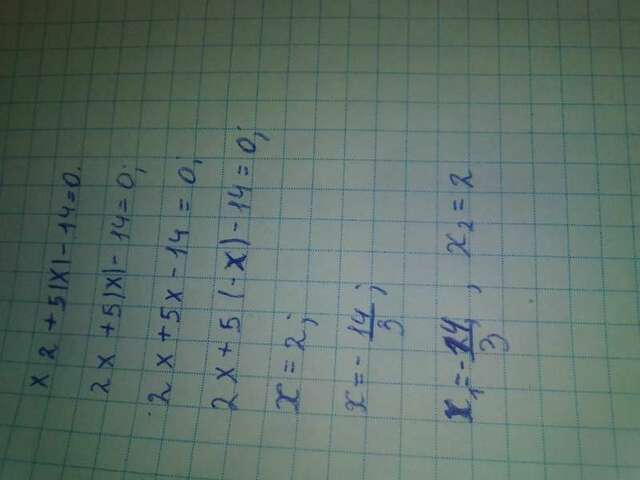 x 2 + 5|x| - 14=0.
2x + 5|x| - 14=0;
2x + 5x - 14 = 0;
2x + 5 (-x) - 14 = 0;
x = 2;
x = - 14/3;
x₁ = - 14/3, x₂ = 2